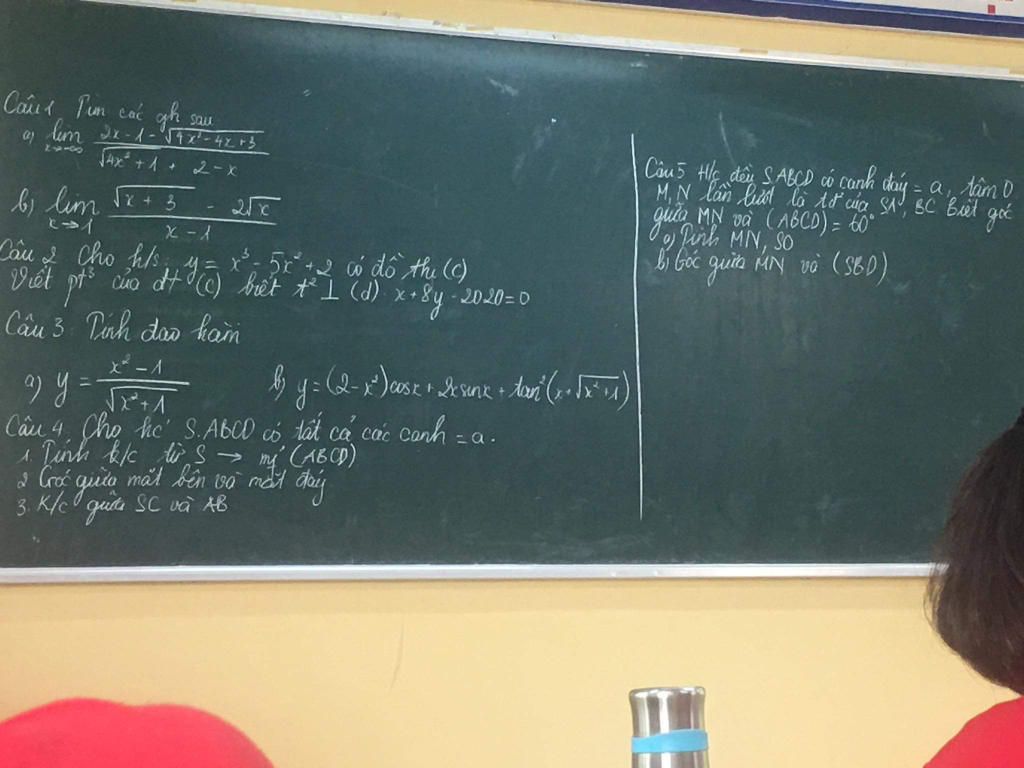 Câu 1 Tìm các gh sau
a) lim x→-∞ (2x - 1 - √(4x² - 4x + 3)) / (√(4x² + 1) + 2 - x)
b) lim x→1 (√(x + 3) - 2√x) / (x - 1)
Câu 2 Cho h/s: y = x³ - 5x² + 2 có đồ thị (C)
Viết pt³ của đt (C) biết t² ⊥ (d) x + 8y - 2020 = 0
Câu 3 Tính đạo hàm
a) y = (x² - 1) / √(x² + 1) b) y = (2 - x²)cosx + 2xsinx + tan²(x + √(x² + 1))
Câu 4. Cho hc' S.ABCD có tất cả các cạnh = a.
1. Tính k/c từ S → mf (ABCD)
2 Góc giữa mặt bên và mặt đáy
3. K/c giữa SC và AB
Câu 5 H/c đều S.ABCD có cạnh đáy = a, tâm O
M, N lần lượt là tđ của SA, BC Biết góc
giữa MN và (ABCD) = 60°
a) Tính MN, SO
b) Góc giữa MN và (SBD)